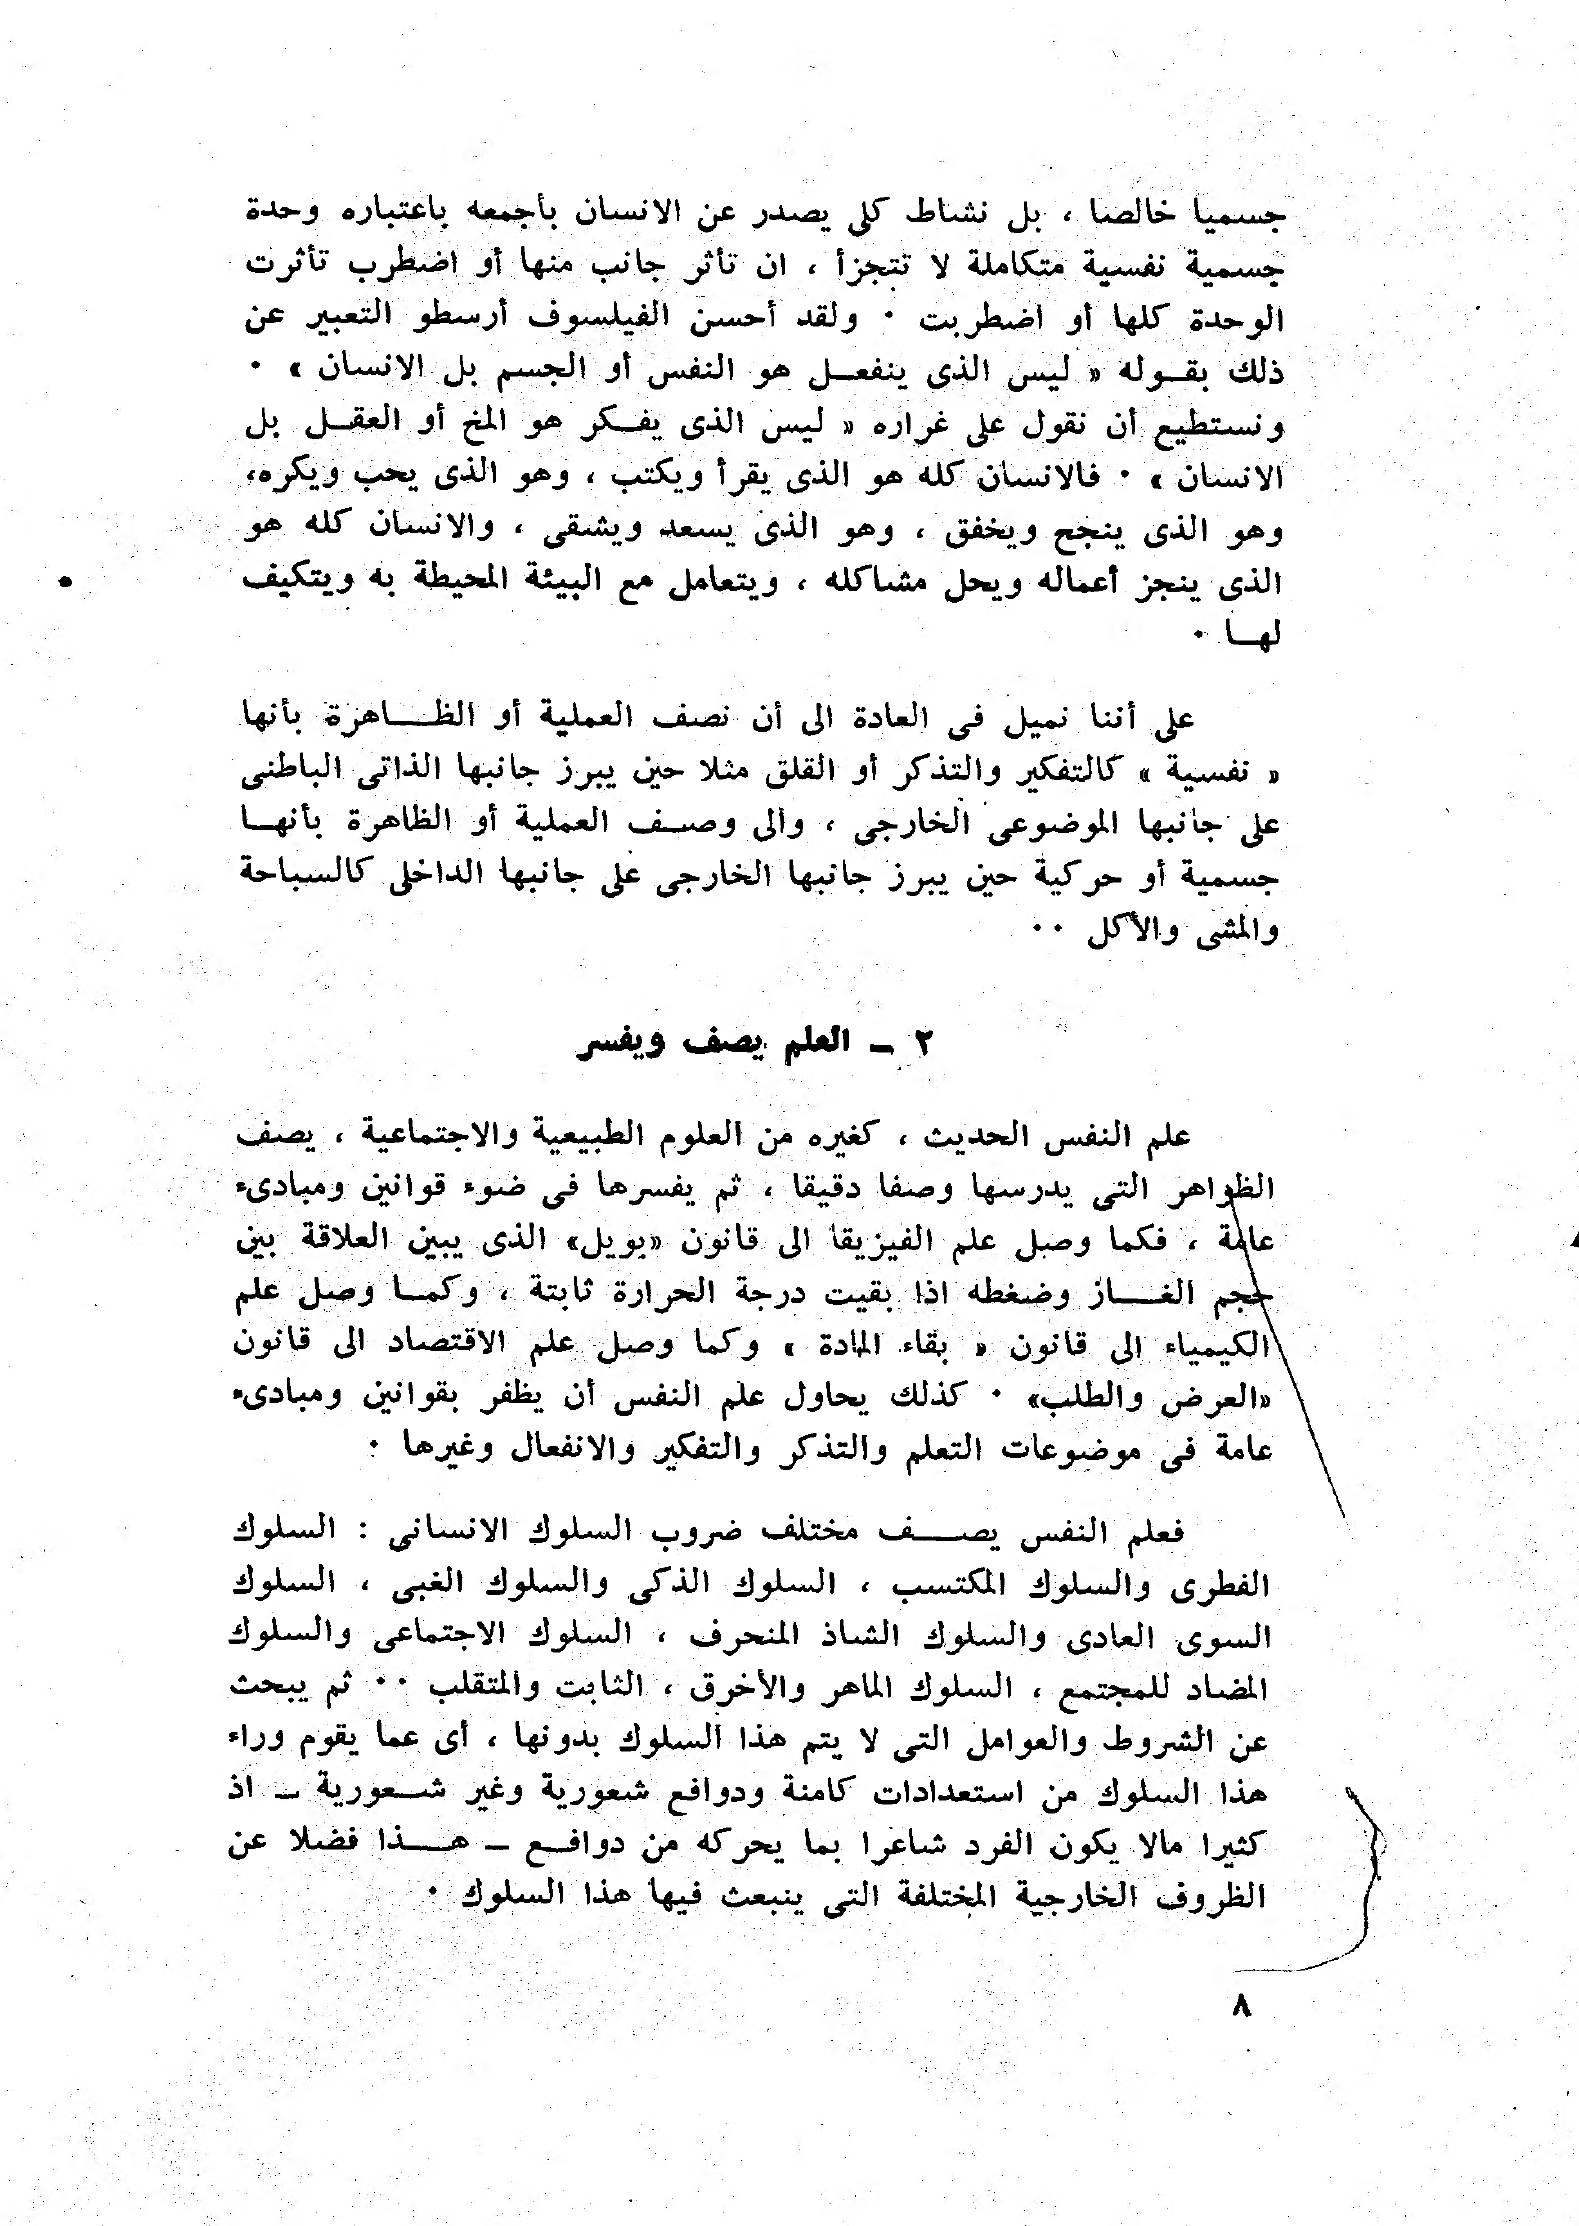 جسميا خالصا ، بل نشاط كلى يصدر عن الانسان بأجمعه باعتباره وحدة
جسمية نفسية متكاملة لا تتجزأ ، ان تأثر جانب منها أو اضطرب تأثرت
الوحدة كلها أو اضطربت ٠ ولقد أحسن الفيلسوف أرسطو التعبير عن
ذلك بقوله « ليس الذى ينفعل هو النفس أو الجسم بل الانسان » ٠
ونستطيع أن نقول على غراره « ليس الذى يفكر هو المخ أو العقل بل
الانسان » ٠ فالانسان كله هو الذى يقرأ ويكتب ، وهو الذى يحب ويكره،
وهو الذى ينجح ويخفق ، وهو الذى يسعد ويشقى ، والانسان كله هو
الذى ينجز أعماله ويحل مشاكله ، ويتعامل مع البيئة المحيطة به ويتكيف
لها ٠
على أننا نميل فى العادة الى أن نصف العملية أو الظاهرة بأنها
« نفسية » كالتفكير والتذكر أو القلق مثلا حين يبرز جانبها الذاتى الباطنى
على جانبها الموضوعى الخارجى ، والى وصف العملية أو الظاهرة بأنها
جسمية أو حركية حين يبرز جانبها الخارجى على جانبها الداخلى كالسباحة
والمشى والأكل ٠٠
٢ – العلم يصف ويفسر
علم النفس الحديث ، كغيره من العلوم الطبيعية والاجتماعية ، يصف
الظواهر التى يدرسها وصفا دقيقا ، ثم يفسرها فى ضوء قوانين ومبادىء
عامة ، فكما وصل علم الفيزيقا الى قانون «بويل» الذى يبين العلاقة بين
حجم الغاز وضغطه اذا بقيت درجة الحرارة ثابتة ، وكما وصل علم
الكيمياء الى قانون « بقاء المادة » وكما وصل علم الاقتصاد الى قانون
«العرض والطلب» ٠ كذلك يحاول علم النفس أن يظفر بقوانين ومبادىء
عامة فى موضوعات التعلم والتذكر والتفكير والانفعال وغيرها ٠
فعلم النفس يصف مختلف ضروب السلوك الانسانى : السلوك
الفطرى والسلوك المكتسب ، السلوك الذكى والسلوك الغبى ، السلوك
السوى العادى والسلوك الشاذ المنحرف ، السلوك الاجتماعى والسلوك
المضاد للمجتمع ، السلوك الماهر والأخرق ، الثابت والمتقلب ٠٠ ثم يبحث
عن الشروط والعوامل التى لا يتم هذا السلوك بدونها ، أى عما يقوم وراء
هذا السلوك من استعدادات كامنة ودوافع شعورية وغير شعورية – اذ
كثيرا مالا يكون الفرد شاعرا بما يحركه من دوافع – هذا فضلا عن
الظروف الخارجية المختلفة التى ينبعث فيها هذا السلوك ٠
٨